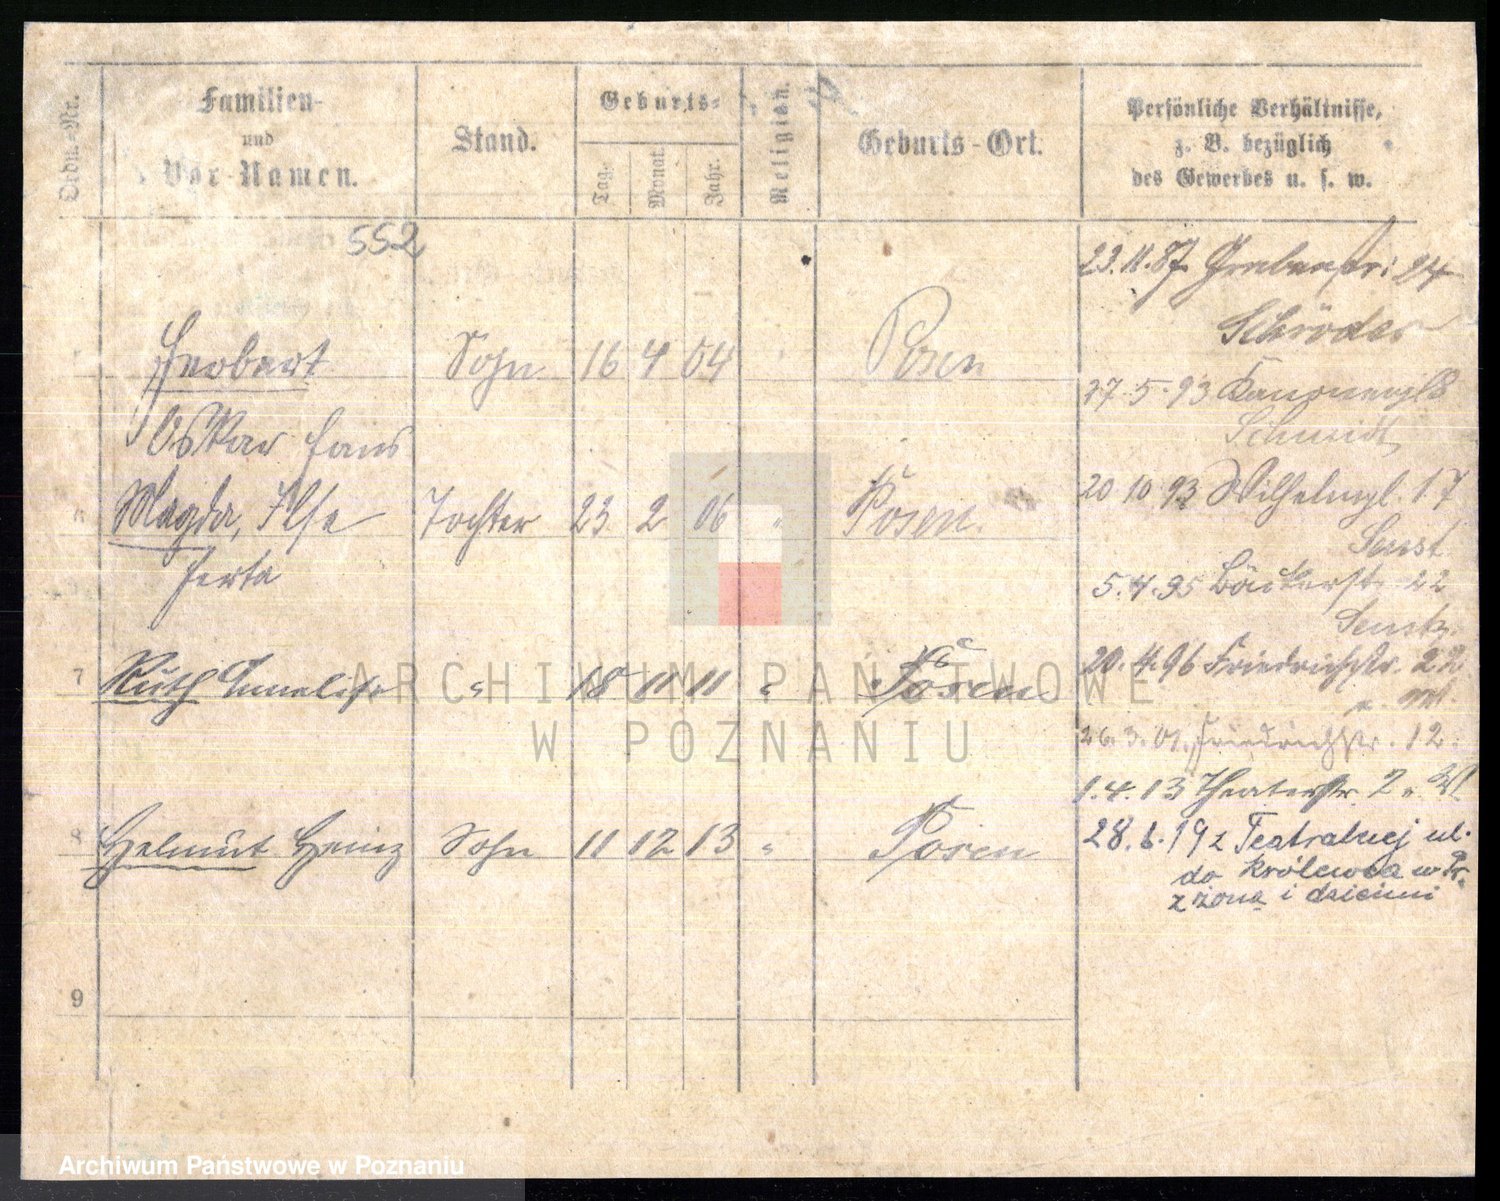 Ordn.-Nr.
Familien-
und
Vor-Namen.
Stand.
Geburts-
Tag.
Monat.
Jahr.
Religion.
Geburts-Ort.
Persönliche Verhältnisse,
z. B. bezüglich
des Gewerbes u. s. w.
552
Herbert Sohn 16 4 04 Posen
Oskar Hans
Magda, Ilse Tochter 23 2 06 " Posen.
Herta
7 Ruth Annelise " 18 11 11 " Posen
8 Helmut Heinz Sohn 11 12 13 " Posen
9
23.11.87 Grabenstr: 24
Schröder
27.5.93 Kanonenpl 8
Schmidt
20 10 93 Wilhelmspl. 17
5.4.95 Bäckerstr. 22
20.4.96 Friedrichstr. 22
26.3.01. Friedrichstr. 12.
1.4.13 Theaterstr. 2
28.6.19 z Teatralnej ul.
do Królewca w Pr.
z żoną i dziećmi
ARCHIWUM PAŃSTWOWE
W POZNANIU
Archiwum Państwowe w Poznaniu